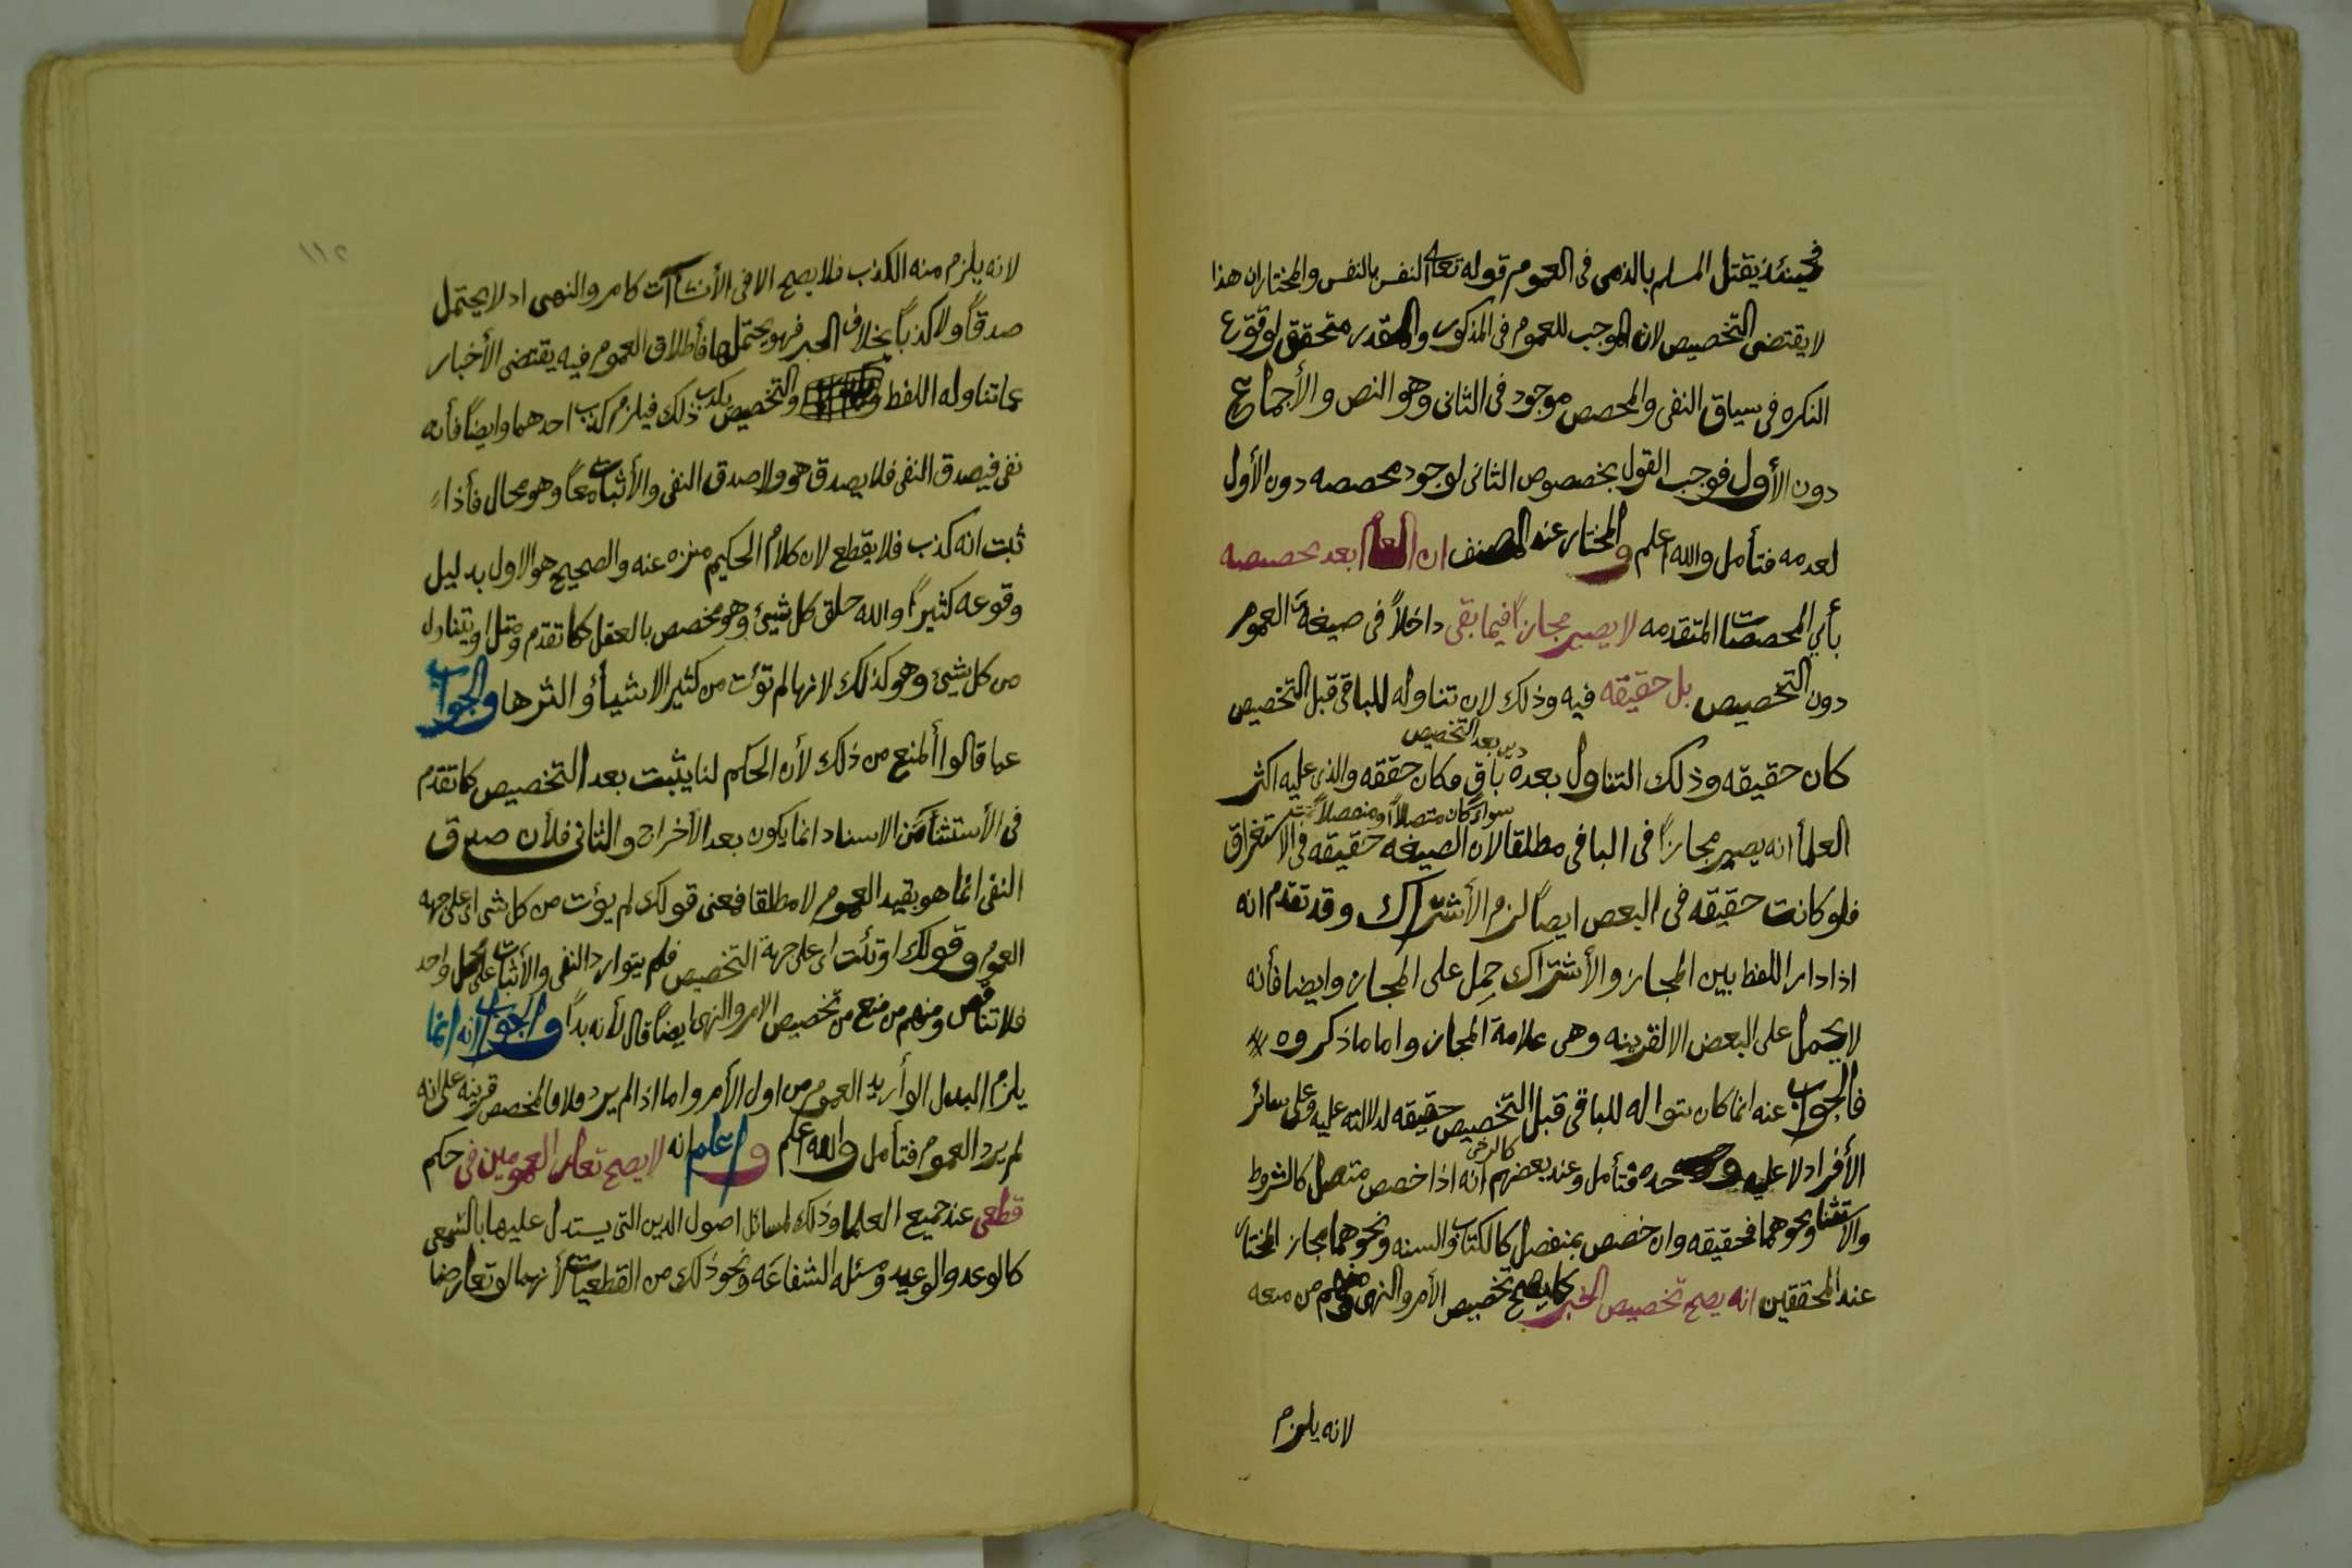 فحينئذ يقتل المسلم بالذمى فى العموم قوله تعالى النفس بالنفس والمختار ان هذا
لا يقتضى التخصيص لان الموجب للعموم فى المذكور والمقدر متحقق لوقوع
النكره فى سياق النفى والمخصص موجود فى الثانى وهو النص والأجماع
دون الأول فوجب القول بخصوص الثانى لوجود مخصصه دون الأول
لعدمه فتأمل والله اعلم والمختار عند المصنف ان العام بعد تخصيصه
بأي المخصصات المتقدمه لا يصير مجازاً فيما بقى داخلاً فى صيغة العموم
دون التخصيص بل حقيقه فيه وذلك لان تناوله للباقى قبل التخصيص
بعد التخصيص
كان حقيقه وذلك التناول بعده باق فكان حققه والذى عليه اكثر
سواء كان متصلاً او منفصلاً
العلمأ انه يصير مجازاً فى الباقى مطلقا لان الصيغه حقيقه فى الاستغراق
فلو كانت حقيقه فى البعض ايضاً لزم الأشتراك وقد تقدم انه
اذا دار اللفظ بين المجاز والأشتراك حمل على المجاز وايضا فأنه
لا يحمل على البعض الا لقرينه وهى علامة المجاز واما ما ذكروه
فالجواب عنه انما كان تنواله للباقى قبل التخصيص حقيقه لدلالته عليه وعلى سائر
الأفراد لا عليه وحده فتأمل وعند بعضهم كالرخى انه اذا خصص متصل كالشروط
والاستثنا ونحوهما فحقيقه وان خصص بمنفصل كالكتاب والسنه ونحوهما مجاز المختار
عند المحققين انه يصح تخصيص الخبر كما يصح تخصيص الأمر والنهى ومنهم من منعه
لانه يلزم
١١٢
لانه يلزم منه الكذب فلا يصح الا فى الأنشآآت كامر والنهى اد لا يحتمل
صدقاً ولا كذباً بخلاف الخبر فهو يحتملها فأطلاق العموم فيه يقتضى الأخبار
عما تناوله اللفظ والتخصيص يكذب ذلك فيلزم كذب احدهما وايضاً فأنه
نفى فيصدق النفى فلا يصدق هو والا صدق النفى والأثبات معاً وهو محال فأذا
ثبت انه كذب فلا يقطع لان كلام الحكيم منزه عنه والصحيح هو الاول بدليل
وقوعه كثيراً والله خلق كل شيئ وهو مخصص بالعقل كما تقدم ومثل اوتينا ول
من كل شيئ وهو كذلك لانها لم تؤت من كثير الاشيأ و الثرها والجواب
عما قالوا ألمنع من ذلك لأن الحكم لنا يثبت بعد التخصيص كما تقدم
فى الأستثنأ من الاسناد انما يكون بعد الأخراج والثانى فلأن صدق
النفى انما هو بقيد العموم لا مطلقا فمعنى قولك لم يؤت من كل شى اى على جهه
العموم وقولك اوتئت اى على جهة التخصيص فلم يتوارد النفى والأثبات على محل واحد
فلا تناقض ومنهم من منع من تخصيص الامر والنهى ايضاً قال لأنه بدأ والجواب انه انما
يلزم البدل الو أريد العموم من اول الأمر واما اذا لم يرد فلا فالمخصص قرينه على انه
لم يرد العموم فتأمل والله اعلم واعلم انه لا يصح تعارض العمومين فى حكم
قطعى عند جميع العلما وذلك لمسائل اصول الدين التى يستدل عليها بالسمعى
كالوعد والوعيد ومسئله الشفاعه ونحو ذلك من القطعيات لأنهما لو تعارضا